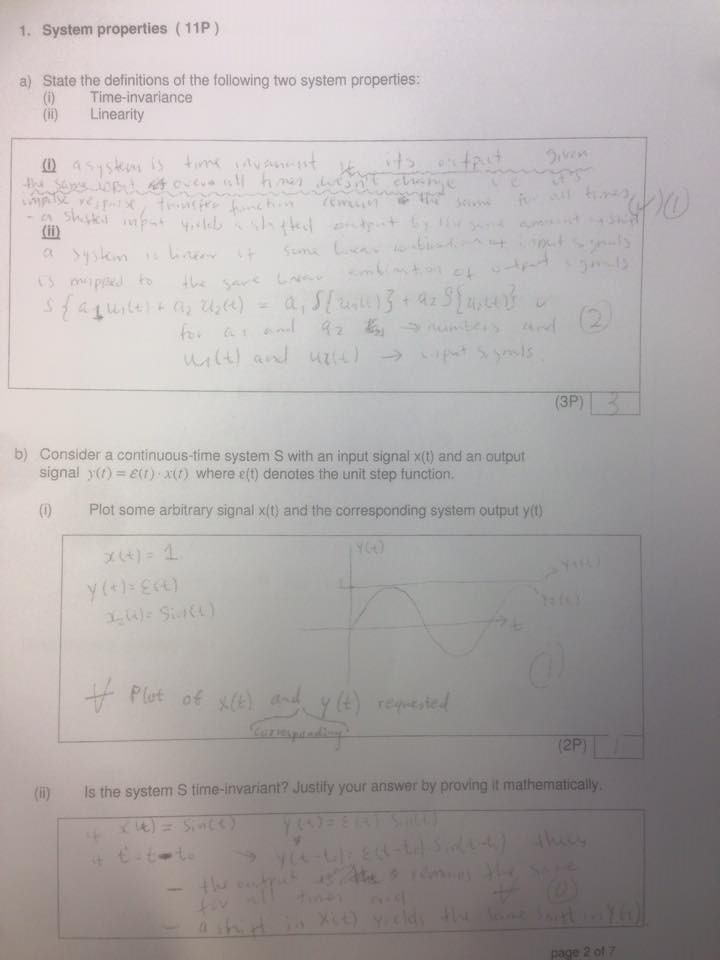 1. System properties ( 11P )
a) State the definitions of the following two system properties:
(i) Time-invariance
(ii) Linearity
(i) a system is time invariant if its output given
the same input over all times doesn't change i.e it's
impulse response, transfer function remain the same for all times (✓) (1)
- a shifted input yields a shifted output by the same amount of shift
(ii)
a system is linear if some linear combination of input signals
is mapped to the same linear combination of output signals
S{a1u1(t) + a2 u2(t) = a1 S{u1(t)} + a2 S{u2(t)} ✓
for a1 and a2 → numbers and (2)
u1(t) and u2(t) → input signals.
(3P) 3
b) Consider a continuous-time system S with an input signal x(t) and an output
signal y(t) = ε(t) · x(t) where ε(t) denotes the unit step function.
(i) Plot some arbitrary signal x(t) and the corresponding system output y(t)
x(t) = 1
y(t) = ε(t)
x2(t) = Sin(t)
y(t)
1
y1(t)
y2(t)
t
(1)
Plot of x(t) and y(t) requested
corresponding
(2P) 1
(ii) Is the system S time-invariant? Justify your answer by proving it mathematically.
if x(t) = Sin(t) y(t) = ε(t) Sin(t)
if t = t - to → y(t-to) = ε(t-to) Sin(t-to) thus
- the output remains the same
for all times and (0)
- a shift in x(t) yields the same shift in y(t)
page 2 of 7